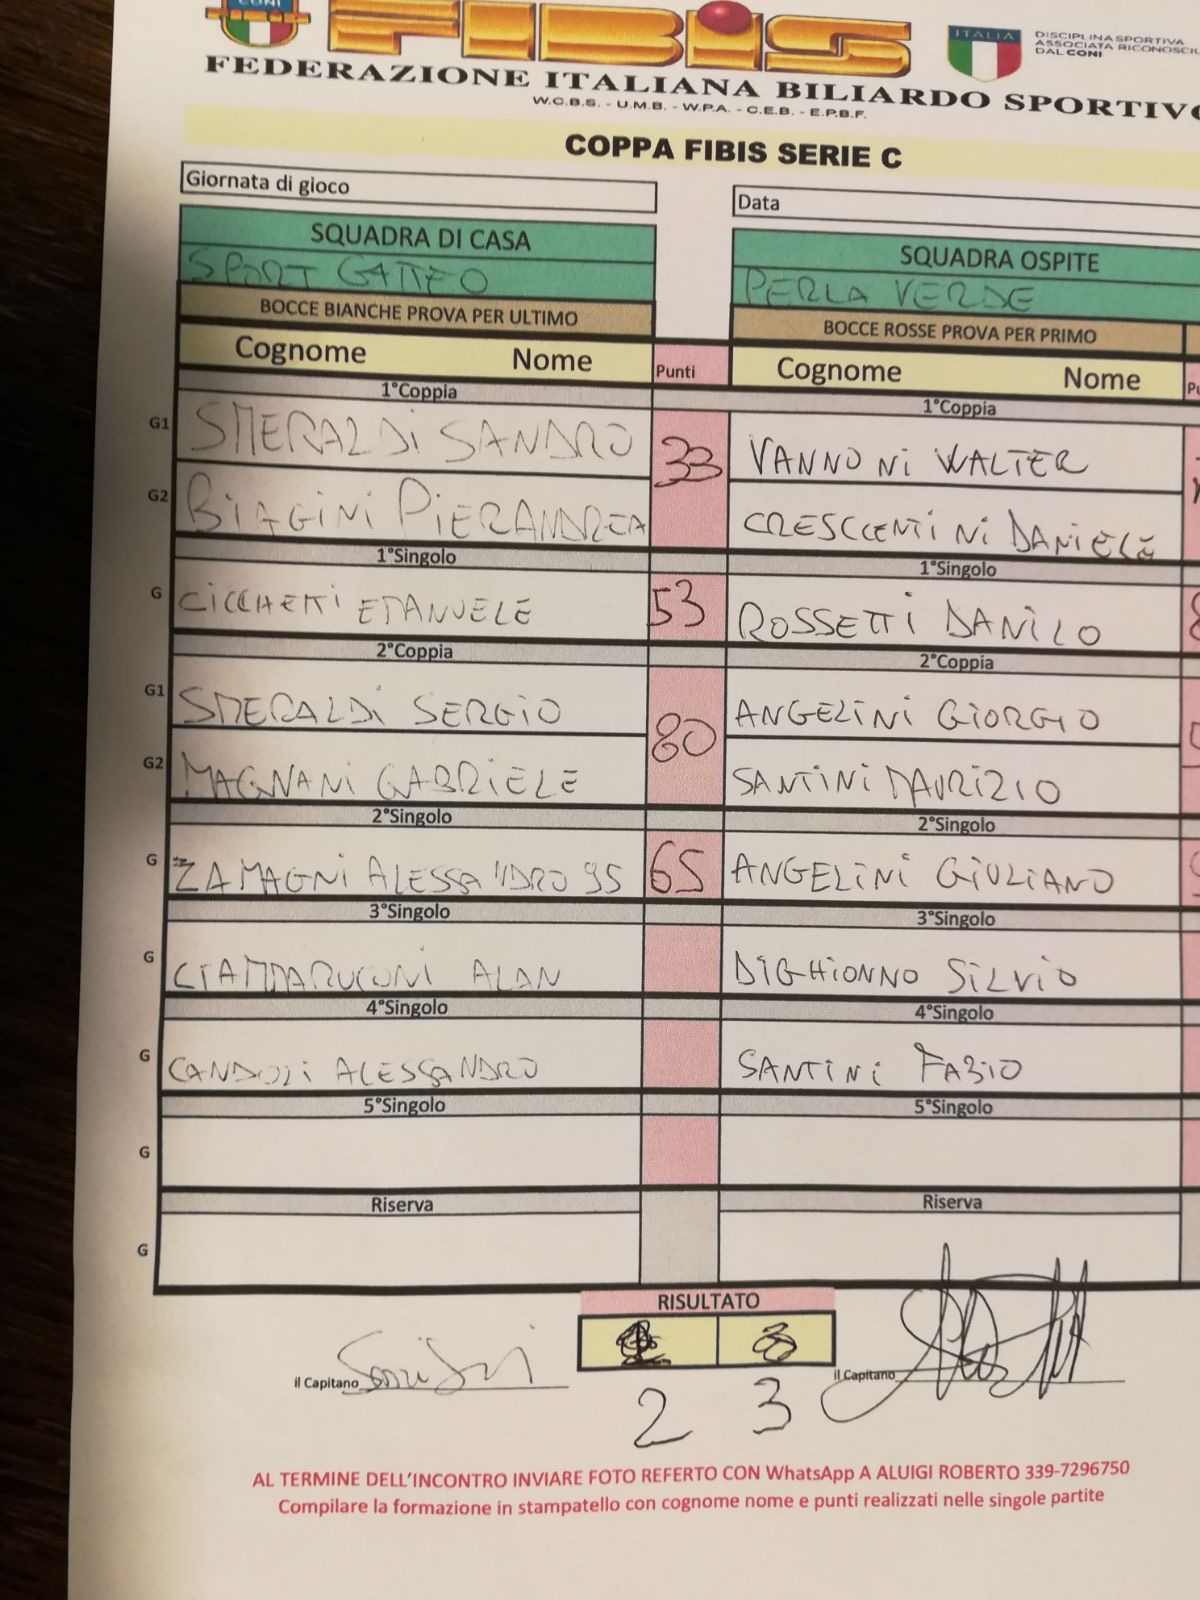 CONI
FIBIS
ITALIA
DISCIPLINA SPORTIVA
ASSOCIATA RICONOSCI
DAL CONI
FEDERAZIONE ITALIANA BILIARDO SPORTIVO
W.C.B.S. - U.M.B. - W.P.A. - C.E.B. - E.P.B.F.
COPPA FIBIS SERIE C
Giornata di gioco
Data
SQUADRA DI CASA
SQUADRA OSPITE
SPORT GATTEO
PERLA VERDE
BOCCE BIANCHE PROVA PER ULTIMO
BOCCE ROSSE PROVA PER PRIMO
Cognome Nome Punti
Cognome Nome
1°Coppia
1°Coppia
G1 SMERALDI SANDRO 33
VANNONI WALTER
G2 BIAGINI PIERANDREA
CRESCENTINI DANIELE
1°Singolo
1°Singolo
G CICCHETTI EMANUELE 53
ROSSETTI DANILO
2°Coppia
2°Coppia
G1 SMERALDI SERGIO 80
ANGELINI GIORGIO
G2 MAGNANI GABRIELE
SANTINI MAURIZIO
2°Singolo
2°Singolo
G ZAMAGNI ALESSANDRO 95 65
ANGELINI GIULIANO
3°Singolo
3°Singolo
G ALAN
DIGHIONNO SILVIO
4°Singolo
4°Singolo
G CANDOLI ALESSANDRO
SANTINI FABIO
5°Singolo
5°Singolo
G
Riserva
Riserva
G
RISULTATO
il Capitano
il Capitano
2 3
AL TERMINE DELL'INCONTRO INVIARE FOTO REFERTO CON WhatsApp A ALUIGI ROBERTO 339-7296750
Compilare la formazione in stampatello con cognome nome e punti realizzati nelle singole partite